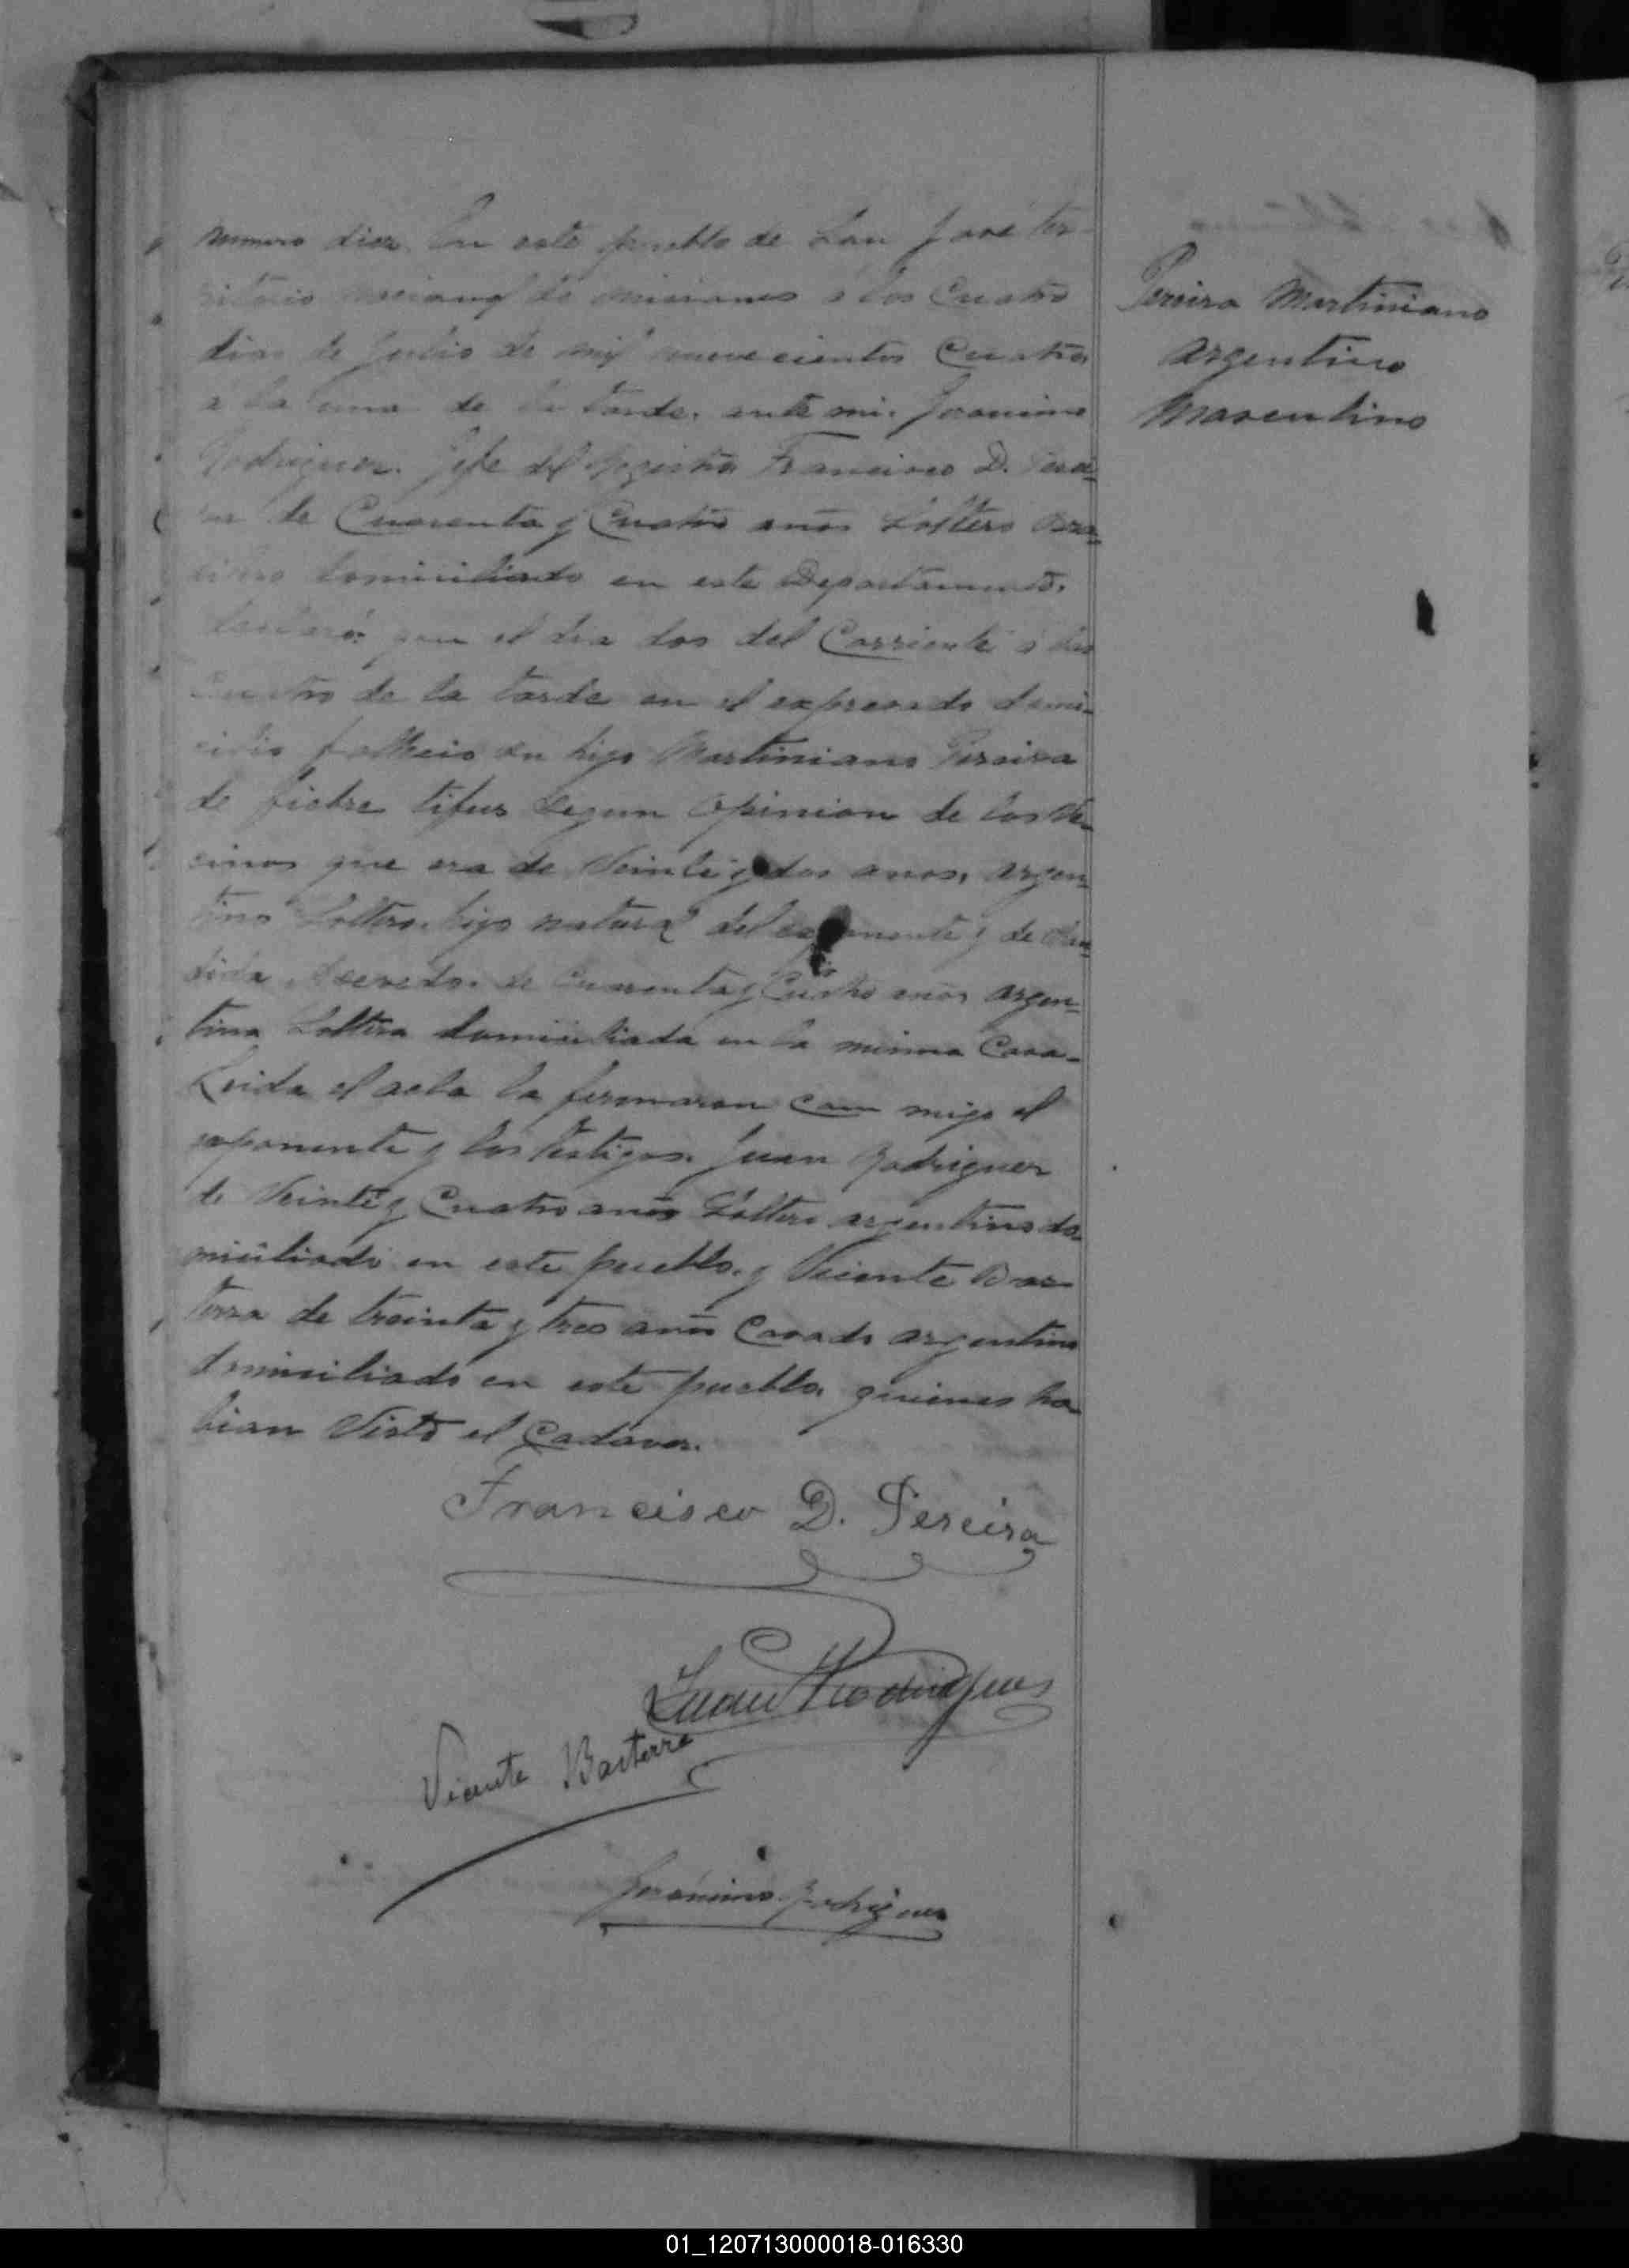 numero diez. En este pueblo de San José ter-
ritorio nacional de misiones á los Cuatro
dias de Julio de mil nuevecientos Cuatro
a la una de la tarde. ante mi. Jeronimo
Rodriguez. Gefe del Registro Francisco D. Perei-
ra de Cuarenta y Cuatro años Soltero Bra-
silero domiciliado en este Departamento.
declaró: que el dia dos del Corriente á las
Cuatro de la tarde en el expresado domi-
cilio falleció su hijo Martiniano Pereira
de fiebre tifus segun opinion de los Ve-
cinos que era de Veinte y dos anos, argen-
tino Soltero. hijo natural del exponente y de
de Cuarenta y Cuatro años argen-
tina Soltera domiciliada en la misma Casa-
Leida el acta la firmaron con migo el
exponente y los testigos. Juan Rodriguez
de Veinte y Cuatro anos Soltero argentino do-
miciliado en este pueblo. y Vicente Bas-
terra de treinta y tres anos Casado argentino
domiciliado en este pueblo. quienes ha-
bian Visto el Cadaver.
Francisco D. Pereira
Juan Rodrigues
Vicente Basterra
Jeronimo Rodriguez
Pereira Martiniano
Argentino
Masculino
01_120713000018-016330